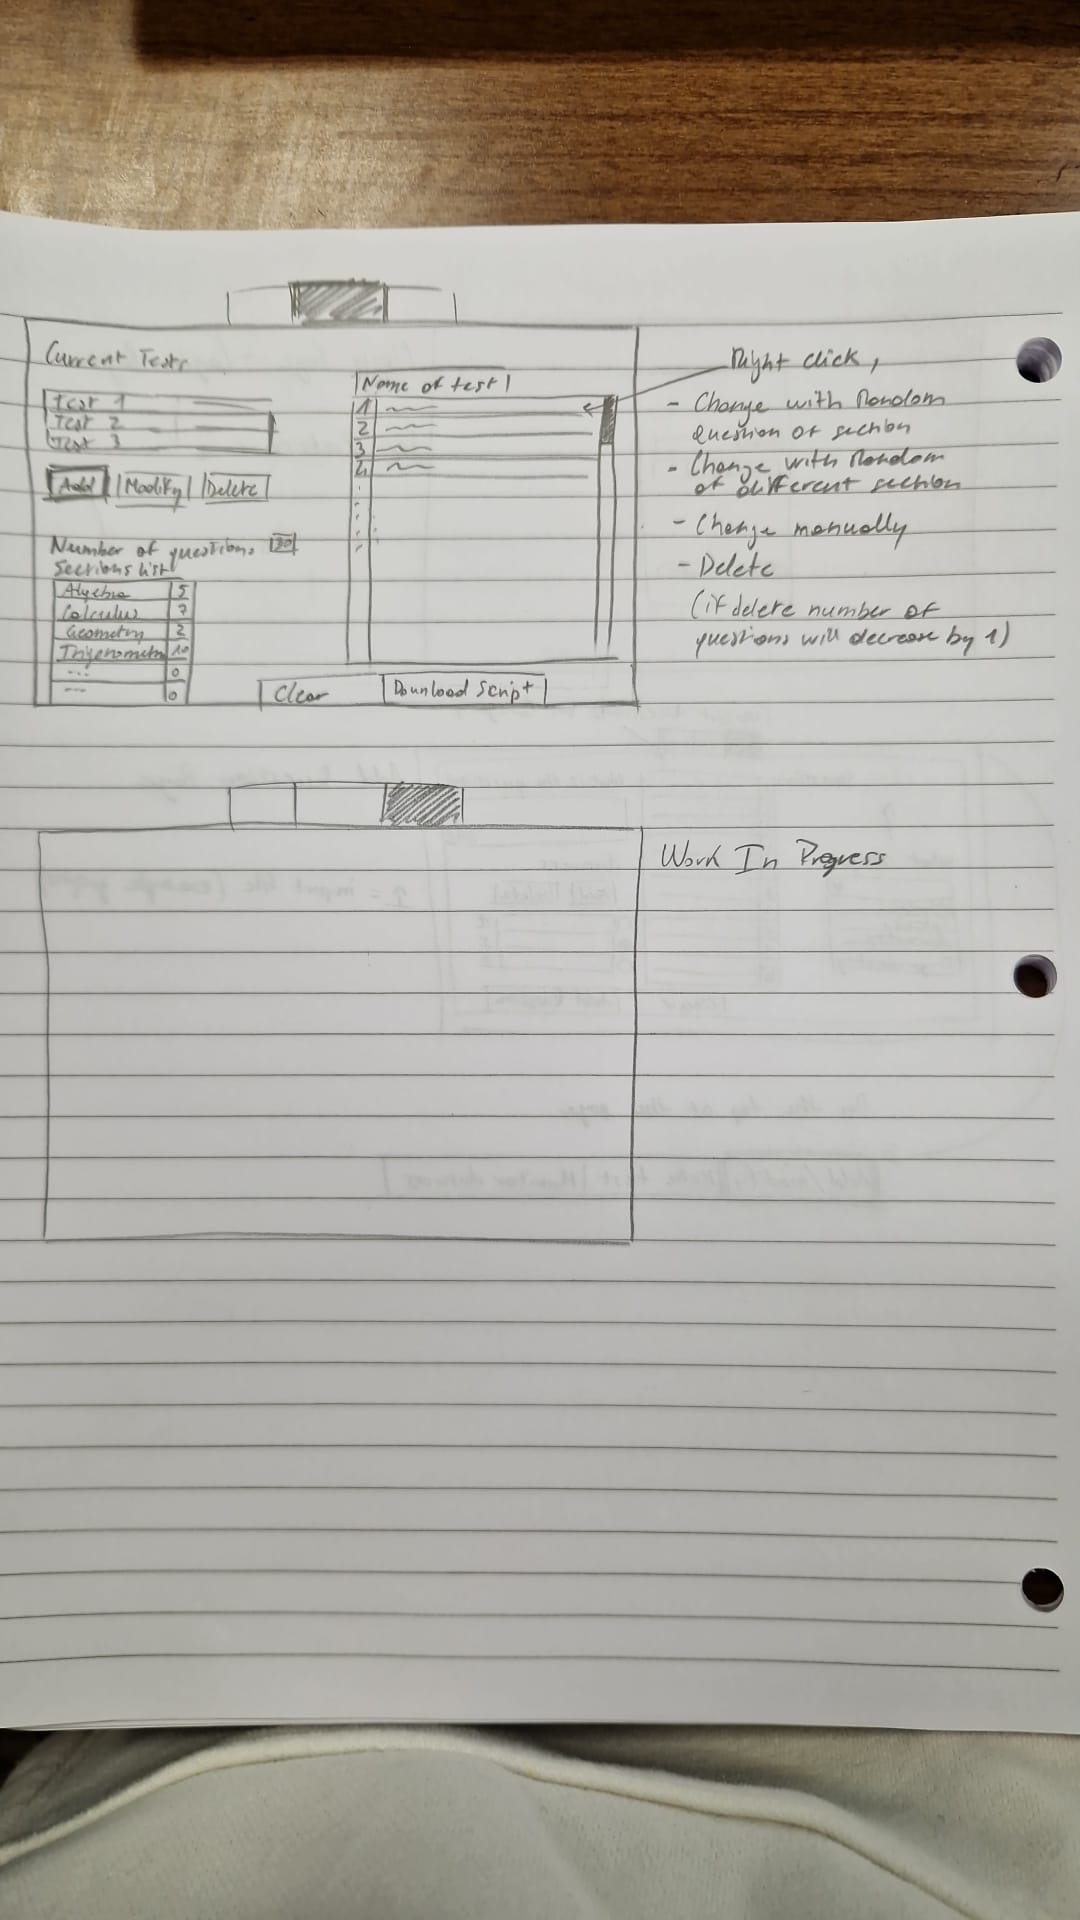 Current Tests
Test 1
Test 2
Test 3
Add Modify Delete
Number of questions 30
Sections list
Algebra 5
Calculus 7
Geometry 2
Trigonometry 10
... 0
--- 0
Name of test
1
2
3
4
Clear
Download Script
Right click,
- Change with Random
question of section
- Change with Random
of different section
- Change manually
- Delete
(if delete number of
questions will decrease by 1)
Work In Progress